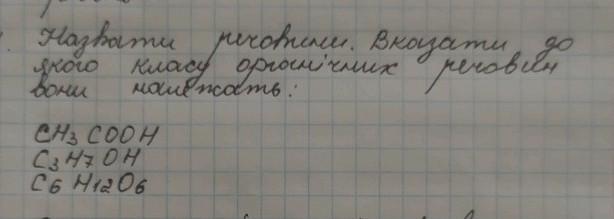 Назвати речовини. Вказати до
якого класу органічних речовин
вони належать:
CH3COOH
C3H7OH
C6H12O6